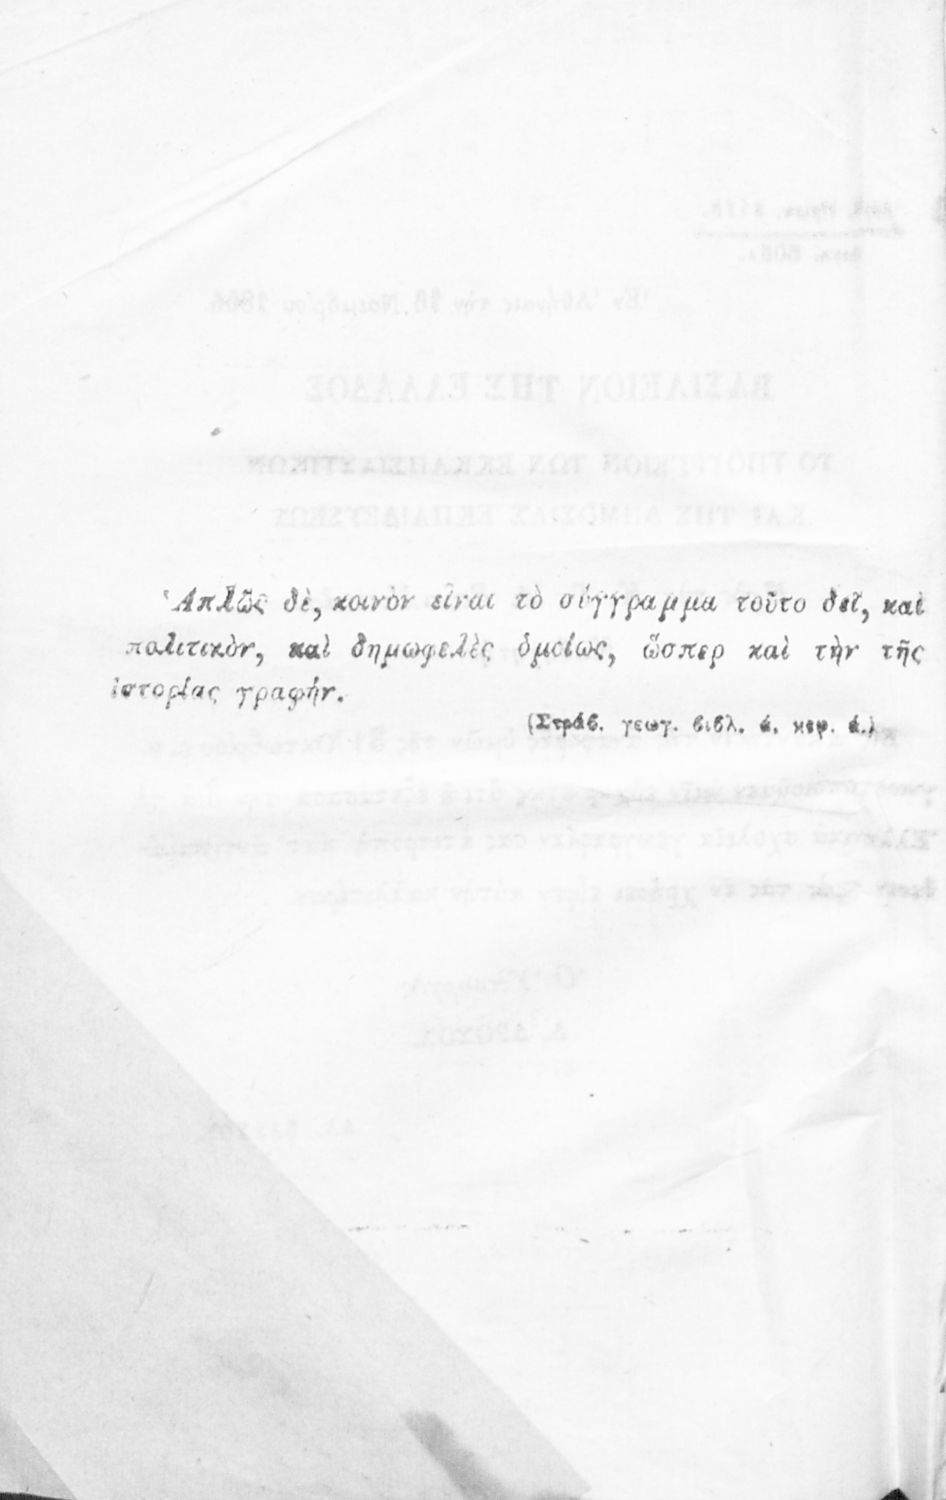 Ἁπλῶς δὲ, κοινὸν εἶναι τὸ σύγγραμμα τοῦτο δεῖ, καὶ
πολιτικὸν, καὶ δημωφελὲς ὁμοίως, ὥσπερ καὶ τὴν τῆς
ἱστορίας γραφήν.
(Στράβ. γεωγ. βιβλ. ά. κεφ. ά.)